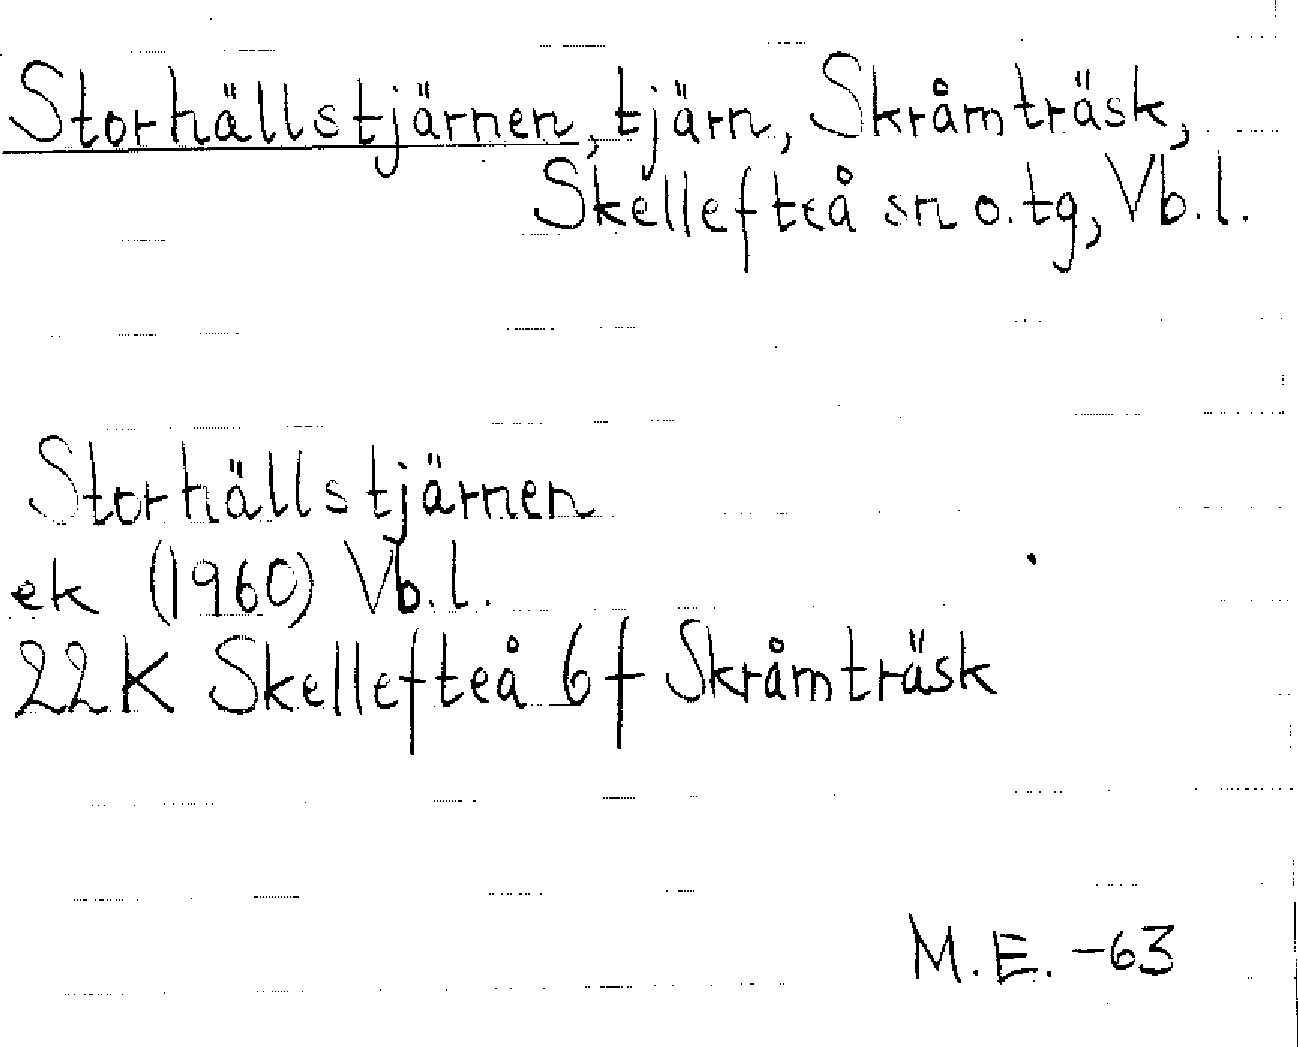 Storhällstjärnen, tjärn, Skråmträsk,
Skellefteå sn o. tg, Vb. l.
Storhällstjärnen
ek (1960) Vb. l.
22K Skellefteå 6f Skråmträsk
M. E. -63